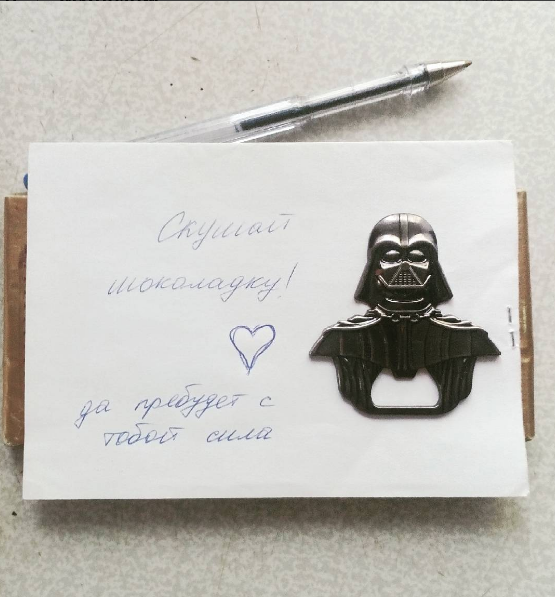 Скушай
шоколадку!
да пребудет с
тобой сила